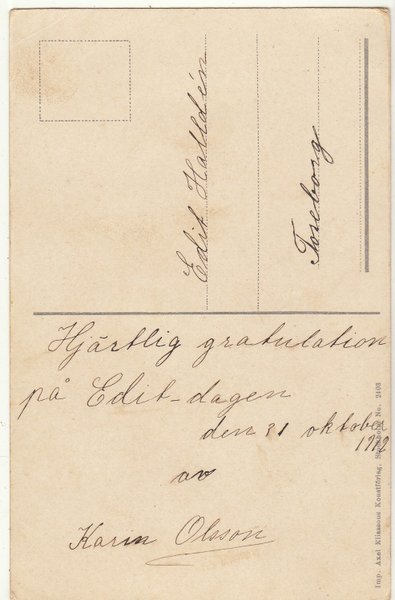 Edit Halldén
Toseborg
Hjärtlig gratulation
på Edit-dagen
den 31 oktober
1912
av
Karin Olsson
Imp. Axel Eliassons Konstförlag, Stockholm No. 2403